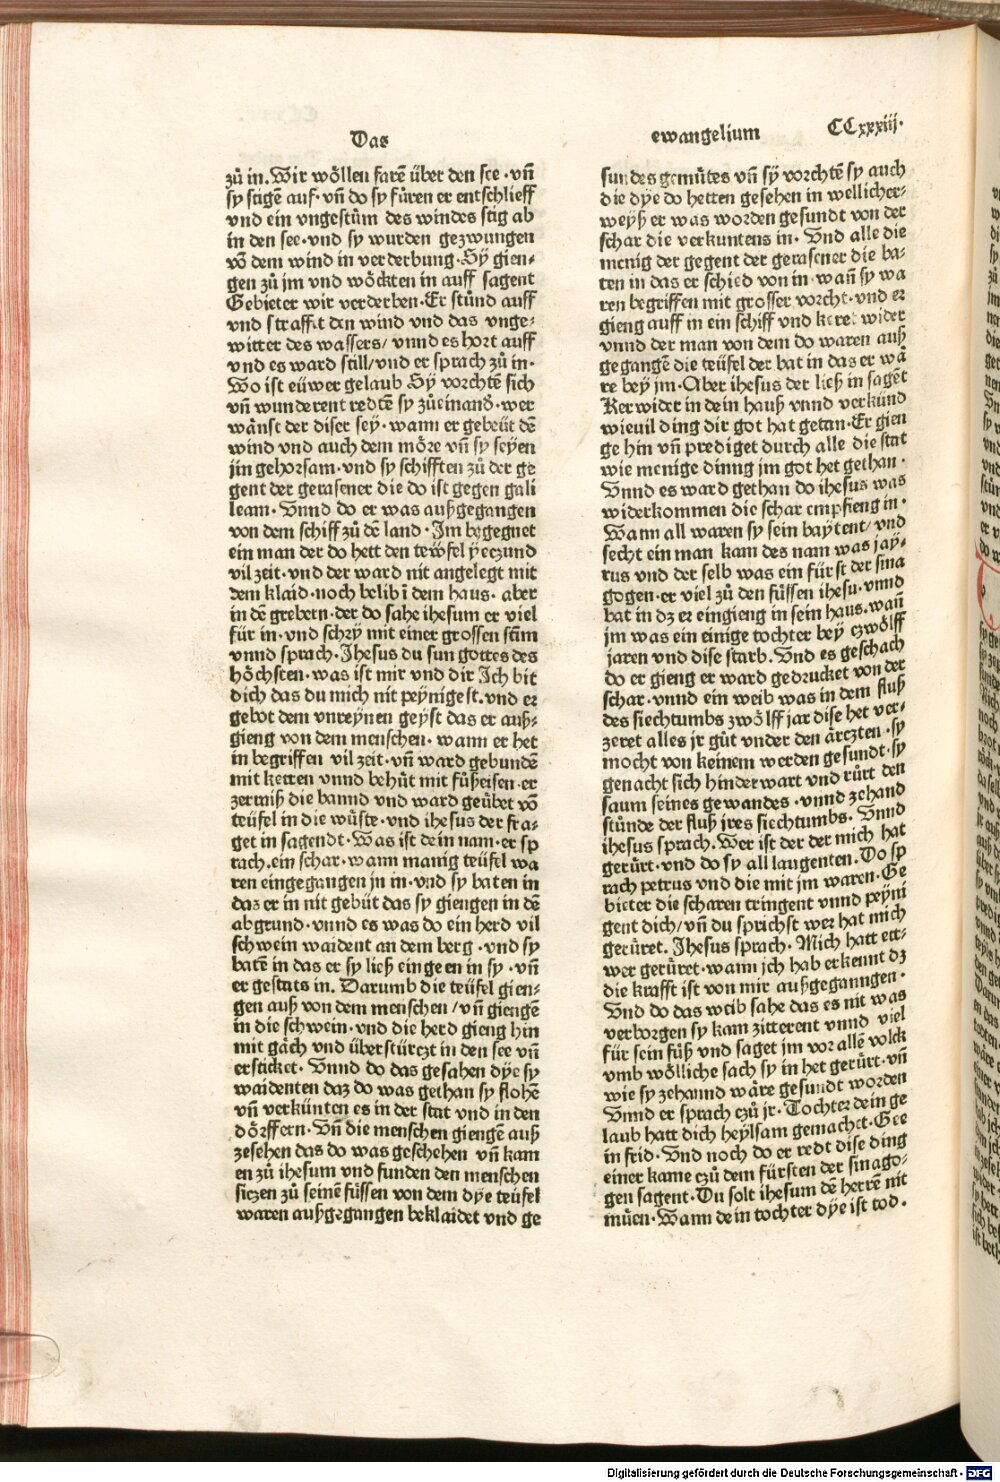 Das
ewangelium
CCxxxiij.
zů in. Wir wöllen farẽ über den see · vñ
sy stigẽ auf · vñ do sy fůren er entschlieff
vnd ein vngestům des windes stig ab
in den see · vnd sy wurden gezwungen
võ dem wind in verderbung · Sÿ gien⸗
gen zů jm vnd wöckten in auff sagent
Gebieter wir verderben · Er stůnd auff
vnd straffet den wind vnd das vnge⸗
witter des wassers / vnnd es hort auff
vnd es ward still / vnd er sprach zů in ·
Wo ist eüwer gelaub Sÿ vorchtẽ sich
vñ wunderent redtẽ sy zůeinand̕ · wer
wånst der diser seÿ · wann er gebeüt dẽ
wind vnd auch dem möre vñ sy seyen
jm gehorsam · vnd sy schifften zů der ge
gent der gerasener die do ist gegen gali
leam · Vnnd do er was außgegangen
von dem schiff zů dẽ land · Im begegnet
ein man der do hett den tewfel ÿeczund
vil zeit · vnd der ward nit angelegt mit
dem klaid · noch belib ĩ dem haus · aber
in dẽ grebern · der do sahe ihesum er viel
für in · vnd schrÿ mit einer grossen stim
vnnd sprach · Jhesus du sun gottes des
höchsten · was ist mir vnd dir Ich bit
dich das du mich nit peynigest · vnd er
gebot dem vnreÿnen geyst das er auß⸗
gieng von dem menschen · wann er het
in begriffen vil zeit · vñ ward gebundẽ
mit ketten vnnd behůt mit fůßeisen · er
zerriß die bannd vnd ward geůbet võ
teüfel in die wůste · vnd ihesus der fra⸗
get in sagendt · Was ist dein nam · er sp
rach · ein schar · wann manig teüfel wa
ren eingegangen jn in · vnd sy baten in
daz er in nit gebüt das sy giengen in dẽ
abgrund · vnnd es was do ein herd vil
schwein waident an dem berg · vnd sy
batẽ in das er sy ließ eingeen in sy · vñ
er gestats in. Darumb die teüfel gien⸗
gen auß von dem menschen / vñ giengẽ
in die schwein · vnd die herd gieng hin
mit gåch vnd überstürczt in den see vñ
ersticket · Vnnd do das gesahen dÿe sy
waidenten daz do was gethan sy flohẽ
vñ verkünten es in der stat vnd in den
dörffern · Vñ die menschen giengẽ auß
zesehen das do was geschehen vñ kam
en zů ihesum vnd funden den menschen
siczen zů seinẽ fůssen von dem dye teüfel
waren außgegangen beklaidet vnd ge
sundes gemůtes vñ sÿ vorchtẽ sy auch
die dye do hetten gesehen in wellicher⸗
weyß er was worden gesundt von der
schar die verkuntens in · Vnd alle die
menig der gegent der gerasener die ba⸗
ten in das er schied von in · wañ sy wa
ren begriffen mit grosser vorcht · vnd er
gieng auff in ein schiff vnd keret wider
vnnd der man von dem do waren auß
gegangẽ die teüfel der bat in das er wå
re beÿ jm · Aber ihesus der ließ in sagẽt
Ker wider in dein hauß vnnd verkünd
wieuil ding dir got hat getan · Er gien
ge hin vñ prediget durch alle die stat
wie menige dinng jm got het gethan ·
Vnnd es ward gethan do ihesus was
widerkommen die schar empfieng in ·
Wann all waren sy sein baytent / vnd
secht ein man kam des nam was jaÿ⸗
rus vnd der selb was ein fürst der sina
gogen · er viel zů den füssen ihesu · vnnd
bat in dz er eingieng in sein haus · wañ
jm was ein einige tochter beÿ czwölff
jaren vnd dise starb · Vnd es geschach
do er gieng er ward gedrucket von der
schar · vnnd ein weib was in dem fluß
des siechtumbs zwölff jar dise het ver⸗
zeret alles jr gůt vnder den årczten · sy
mocht von keinem werden gesundt · sy
genacht sich hinderwart vnd růrt den
saum seines gewandes · vnnd zehand
stůnde der fluß jres siechtumbs · Vnnd
ihesus sprach · Wer ist der der mich hat
gerůrt · vnd do sy all laugenten · Do sp
rach petrus vnd die mit jm waren · Ge
bieter die scharen tringent vnnd peyni
gent dich / vñ du sprichst wer hat mich
gerůret. Jhesus sprach · Mich hatt ett⸗
wer gerůret · wann jch hab erkennt dz
die krafft ist von mir außgeganngen ·
Vnd do das weib sahe das es nit was
verborgen sy kam zitterent vnnd viel
für sein fůß vnd saget jm vor allẽ volck
vmb wölliche sach sy in het gerůrt · vñ
wie sy zehannd wåre gesundt worden
Vnnd er sprach czů jr · Tochter dein ge
laub hatt dich heylsam gemachet · Gee
in frid · Vnd noch do er redt dise ding
einer kame czů dem fürsten der sinago⸗
gen sagent · Du solt ihesum dẽ herrẽ nit
můen · Wann dein tochter dÿe ist tod ·
Digitalisierung gefördert durch die Deutsche Forschungsgemeinschaft - DFG